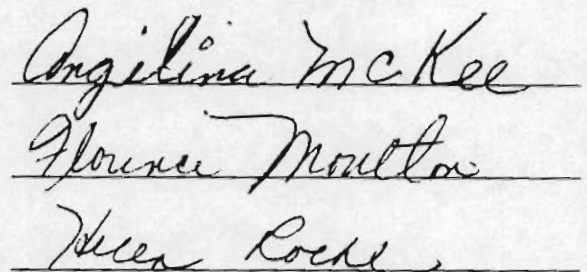 Angelina McKee
Florence Moulton
Helen